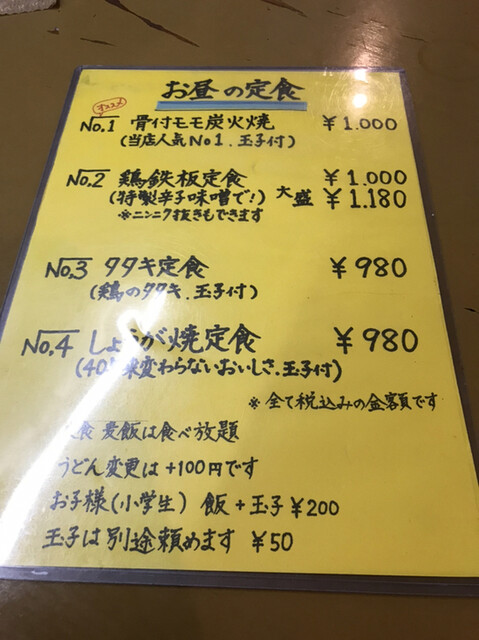 お昼の定食
オススメ
No.1 骨付モモ炭火焼 ¥1.000
(当店人気No1.玉子付)
No.2 鶏鉄板定食 ¥1.000
(特製辛子味噌で!) 大盛 ¥1.180
※ニンニク抜きもできます
No.3 タタキ定食 ¥980
(鶏のタタキ.玉子付)
No.4 しょうが焼定食 ¥980
(40 来変わらないおいしさ.玉子付)
※全て税込みの金額です
食 麦飯は食べ放題
うどん変更は+100円です
お子様(小学生) 飯+玉子¥200
玉子は別途頼めます ¥50